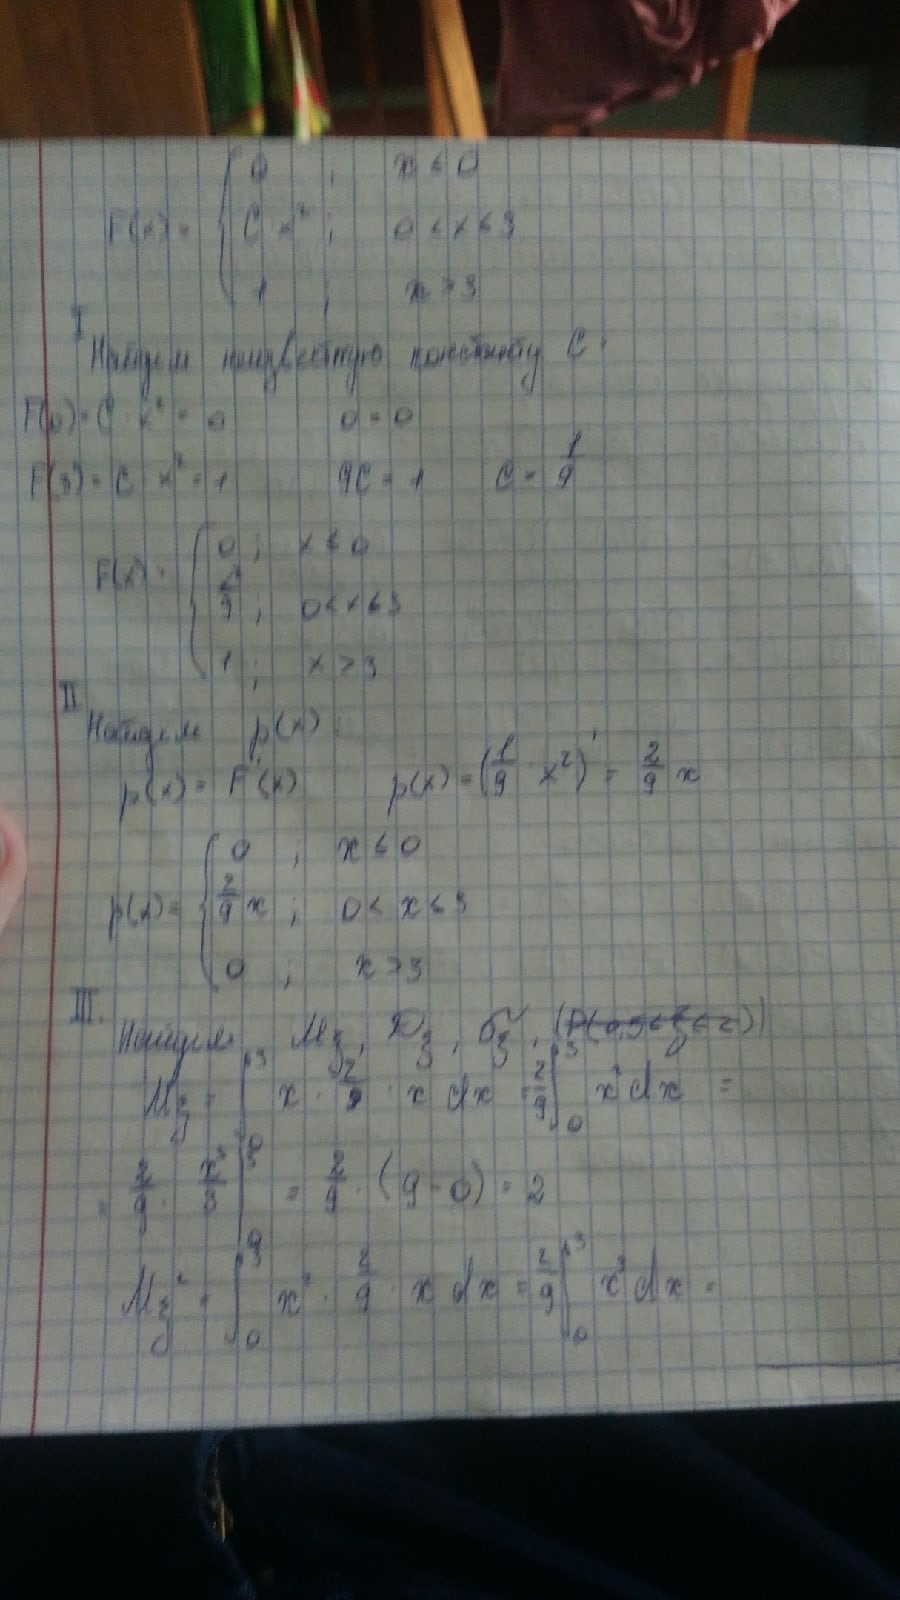 F(x) = { 0 ; x ≤ 0
C · x² ; 0 < x ≤ 3
1 ; x > 3
I
Найдем неизвестную константу C:
F(0) = C · x² = 0 0 = 0
F(3) = C · x² = 1 9C = 1 C = 1/9
F(x) = { 0 ; x ≤ 0
/9 ; 0 < x ≤ 3
1 ; x > 3
II
Найдем p(x):
p(x) = F'(x) p(x) = (1/9 · x²)' = 2/9 x
p(x) = { 0 ; x ≤ 0
2/9 x ; 0 < x ≤ 3
0 ; x > 3
III.
Найдем Mξ, Dξ, σξ, (P(0,5 ≤ ξ ≤ 2))
Mξ = ∫³ x · 2/9 · x dx = 2/9 ∫₀³ x² dx =
= 2/9 · x³/3 |₀³ = 2/9 · (9 - 0) = 2
Mξ² = ∫₀³ x² · 2/9 · x dx = 2/9 ∫₀³ x³ dx =